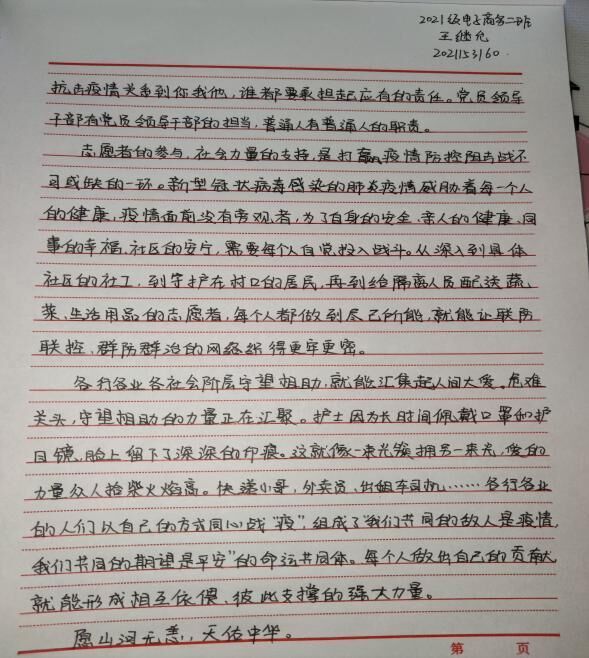 2021级电子商务二班
王继允
202153160
抗击疫情关系到你我他，谁都要承担起应有的责任。党员领导
干部有党员领导干部的担当，普通人有普通人的职责。
志愿者的参与，社会力量的支持，是打赢疫情防控阻击战不
可或缺的一环。新型冠状病毒感染的肺炎疫情威胁着每一个人
的健康，疫情面前没有旁观者，为了自身的安全、亲人的健康、同
事的幸福、社区的安宁，需要每个人自觉投入战斗。从深入到具体
社区的社工，到守护在村口的居民，再到给隔离人员配送蔬、
菜、生活用品的志愿者，每个人都做到尽己所能，就能让联防
联控、群防群治的网络织得更牢更密。
各行各业各社会阶层守望相助，就能汇集起人间大爱。危难
关头，守望相助的力量正在汇聚。护士因为长时间佩戴口罩和护
目镜，脸上留下了深深的印痕。这就像一束光簇拥另一束光，傻的
力量众人拾柴火焰高。快递小哥，外卖员、出租车司机……各行各业
的人们以自己的方式同心战“疫”，组成了“我们共同的敌人是疫情，
我们共同的期望是平安”的命运共同体。每个人做出自己的贡献
就能形成相互依偎、彼此支撑的强大力量。
愿山河无恙，天佑中华。
第 页